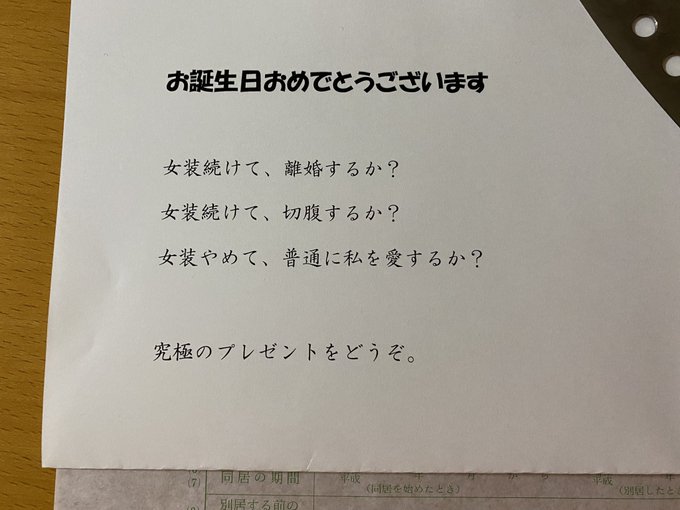 お誕生日おめでとうございます
女装続けて、離婚するか？
女装続けて、切腹するか？
女装やめて、普通に私を愛するか？
究極のプレゼントをどうぞ。
(7)
同居の期間
平成 年 月 から 平成 年
(同居を始めたとき) (別居したとき
別居する前の